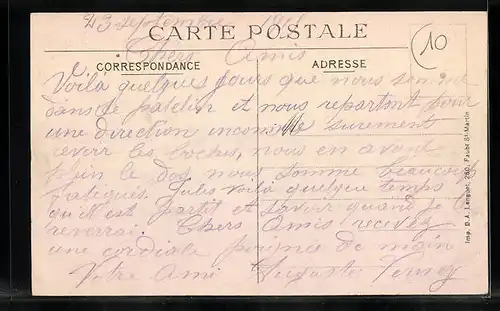 23 septembre
CARTE POSTALE
10
Chers Amis
CORRESPONDANCE
ADRESSE
Voila quelques jours que nous
dans le patelin et nous repartont pour
une direction inconnue surement
revoir les boches, nous en avont
plein le dos nous somme beaucoup
fatigués. Jules voila quelque temps
qu'il est partit et savoir quand je le
reverrai. Chers Amis recevez
une cordiale poignée de main
Votre Ami Auguste
Imp. D.A. Longuet, 250, Faubg St-Martin